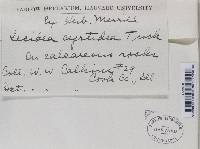 FARLOW HERBARIUM, HARVARD UNIVERSITY
Ex Herb. Merrill
Lecidea cyrtidia Tuck
On calcareous rocks
Coll. W. W. Calkins #29
Cook Co., Ill
Det.